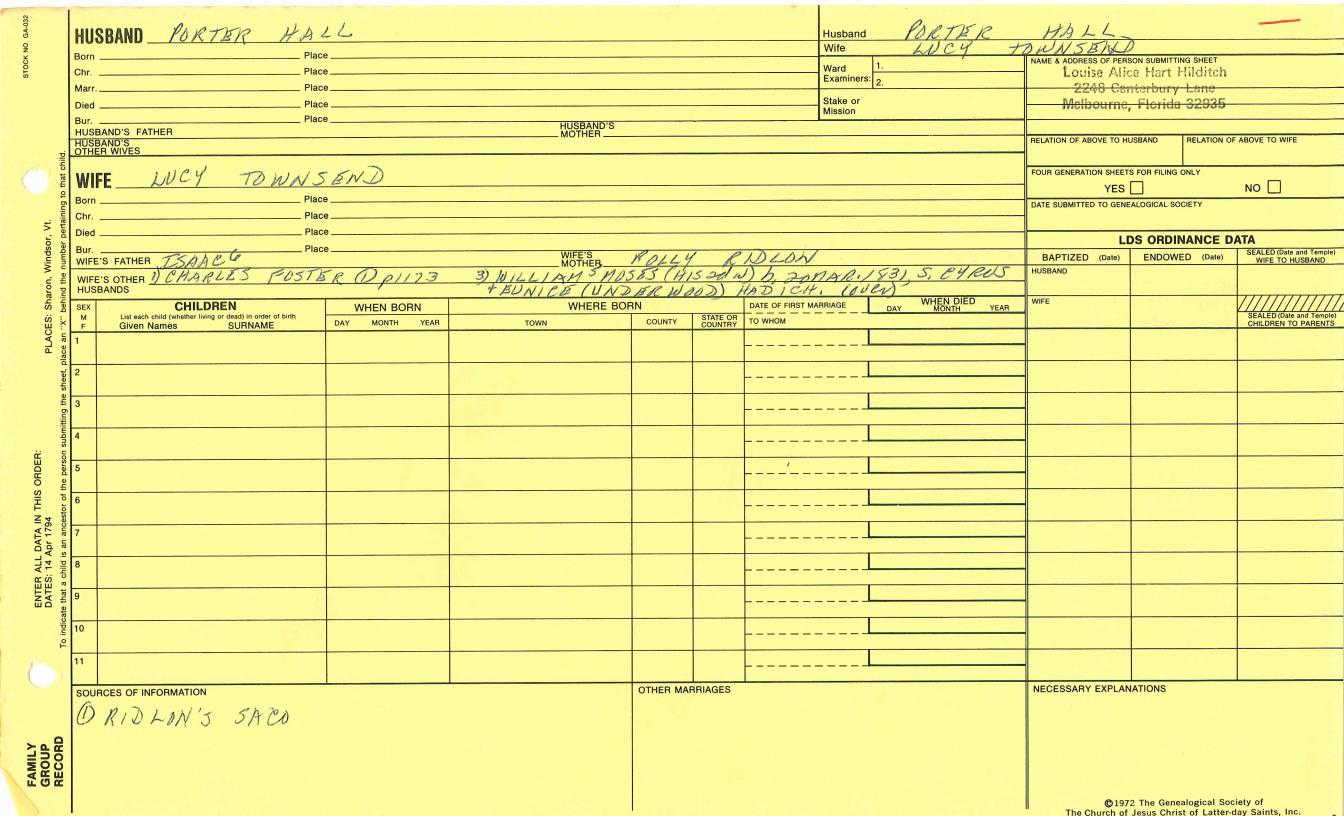 STOCK NO. GA-032
HUSBAND PORTER HALL
Born Place
Chr. Place
Marr. Place
Died Place
Bur. Place
HUSBAND'S FATHER HUSBAND'S MOTHER
HUSBAND'S OTHER WIVES
Husband PORTER HALL
Wife LUCY TOWNSEND
Ward Examiners: 1.
2.
Stake or Mission
NAME & ADDRESS OF PERSON SUBMITTING SHEET
Louise Alice Hart Hilditch
2246 Canterbury Lane
Melbourne, Florida 32935
RELATION OF ABOVE TO HUSBAND RELATION OF ABOVE TO WIFE
FOUR GENERATION SHEETS FOR FILING ONLY
YES NO
DATE SUBMITTED TO GENEALOGICAL SOCIETY
WIFE LUCY TOWNSEND
Born Place
Chr. Place
Died Place
Bur. Place
WIFE'S FATHER ISAAC6 WIFE'S MOTHER POLLY RIDLON
WIFE'S OTHER HUSBANDS 1) CHARLES FOSTER ① p1173 3) WILLIAM5 MOSES (HIS 2d W) b. 20 MAR. 1831, S. CYRUS
+ EUNICE (UNDERWOOD) HAD 1 CH. (OVER)
LDS ORDINANCE DATA
BAPTIZED (Date) ENDOWED (Date) SEALED (Date and Temple) WIFE TO HUSBAND
HUSBAND
WIFE
SEALED (Date and Temple) CHILDREN TO PARENTS
SEX M F
CHILDREN
List each child (whether living or dead) in order of birth
Given Names SURNAME
WHEN BORN
DAY MONTH YEAR
WHERE BORN
TOWN COUNTY STATE OR COUNTRY
DATE OF FIRST MARRIAGE
TO WHOM
WHEN DIED
DAY MONTH YEAR
1
2
3
4
5
6
7
8
9
10
11
SOURCES OF INFORMATION
① RIDLON'S SACO
OTHER MARRIAGES
NECESSARY EXPLANATIONS
PLACES: Sharon, Windsor, Vt.
To indicate that a child is an ancestor of the person submitting the sheet, place an "X" behind the number pertaining to that child.
ENTER ALL DATA IN THIS ORDER:
DATES: 14 Apr 1794
FAMILY GROUP RECORD
©1972 The Genealogical Society of
The Church of Jesus Christ of Latter-day Saints, Inc.